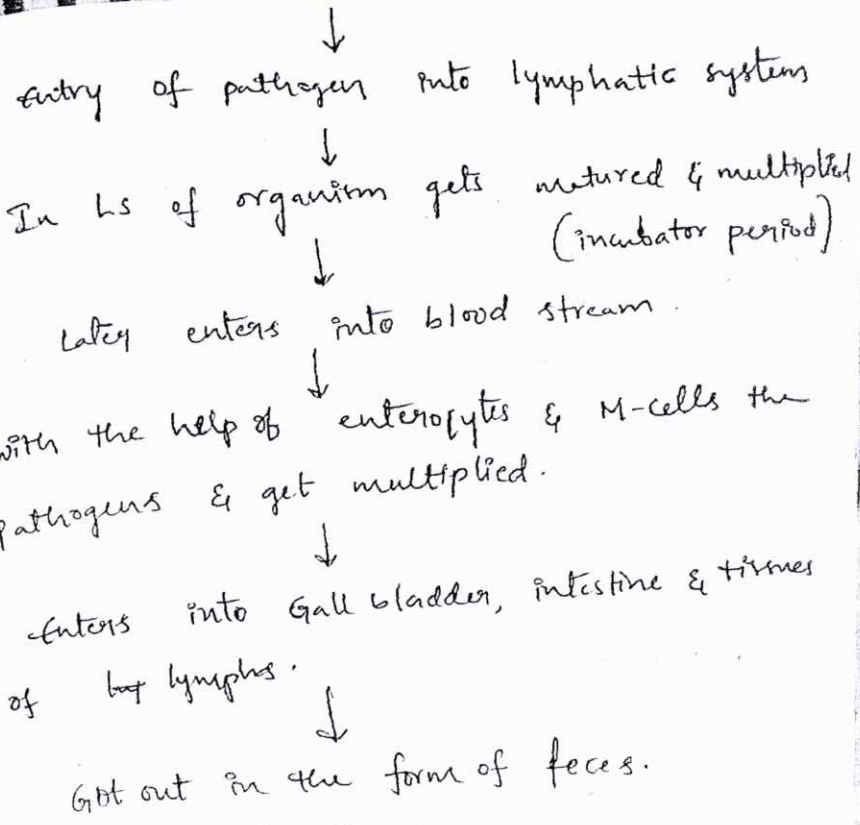 ↓
Entry of pathogen into lymphatic system
↓
In Ls of organism gets matured & multiplied
(incubator period)
↓
Later enters into blood stream.
↓
with the help of enterocytes & M-cells the
pathogens & get multiplied.
↓
Enters into Gall bladder, intestine & tissues
of lymphs.
↓
Got out in the form of feces.